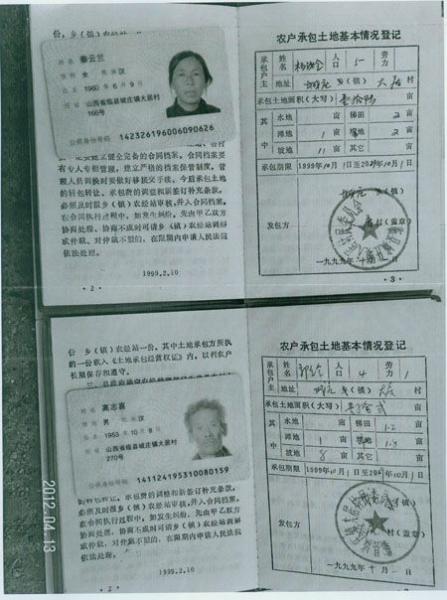 份，乡（镇）农经站一
姓名 秦云兰
性别 女 民族 汉
出生 1960年6月9日
住址 山西省临县城庄镇大居村
166号
公民身份号码 142326196006090626
建立健全完备的合同档案。合同档案要
有专人专柜管理，建立严格的档案保管制度。管
理人员调换时要做好移接交手续。今后承包土地
的转包转让、承包费的调整和新签订补充条款，
必须及时报乡（镇）农经站审核，并入合同档案。
在合同执行过程中，如发生纠纷，先由甲乙双方
协商处理，协商不成时可请乡（镇）农经站调解
或仲裁。对仲裁不服的，在限期内申请人民法院
依法处理。
1999.2.10
·2·
农户承包土地基本情况登记
承包户主
姓名
人口
5
劳力
地址
乡（镇）
大居
村
承包土地面积（大写）
亩
其中
水地
亩
梯田
2
亩
滩地
1
亩
垣地
2
亩
坡地
11
亩
其它
亩
承包期限
1999年10月1日至
年10月1日
乡（镇）
发包方
村（盖章）
一九九九年十月
日
·3·
份 乡（镇）农经站一份。其中土地承包方所执
的一份载入《土地承包经营权证》内，以利农户
长期保存和遵守。
姓名 高志喜
性别 男 民族 汉
出生 1953年10月8日
住址 山西省临县城庄镇大居村
270号
公民身份号码 141124195310080159
的转包转让、承包费的调整和新签订补充条款，
必须及时报乡（镇）农经站审核，并入合同档案。
在合同执行过程中，如发生纠纷，先由甲乙双方
协商处理，协商不成时可请乡（镇）农经站调解
或仲裁。对仲裁不服的，在限期内申请人民法院
依法处理。
1999.2.10
2012.04.13
农户承包土地基本情况登记
承包户主
姓名
人口
4
劳力
1
地址
乡（镇）
大居
村
承包土地面积（大写）
亩
其中
水地
亩
梯田
1.2
亩
滩地
1
亩
垣地
亩
坡地
8
亩
其它
亩
承包期限
1999年10月1日至
年10月1日
乡（镇）
发包方
村（盖章）
一九九九年十月
日